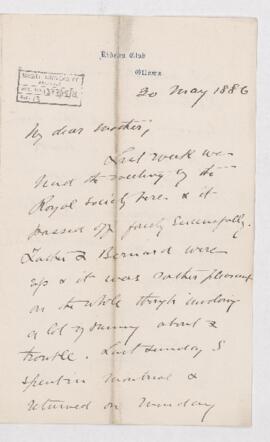 Rideau Club
Ottawa
20 May 1886
My dear Mother,
Last week was
held the meeting of the
Royal Society here & it
passed off fairly successfully.
Father & Bernard were
up & it was rather pleasant
on the whole though involving
a lot of running about &
trouble. Last Sunday I
spent in Montreal &
returned on Monday